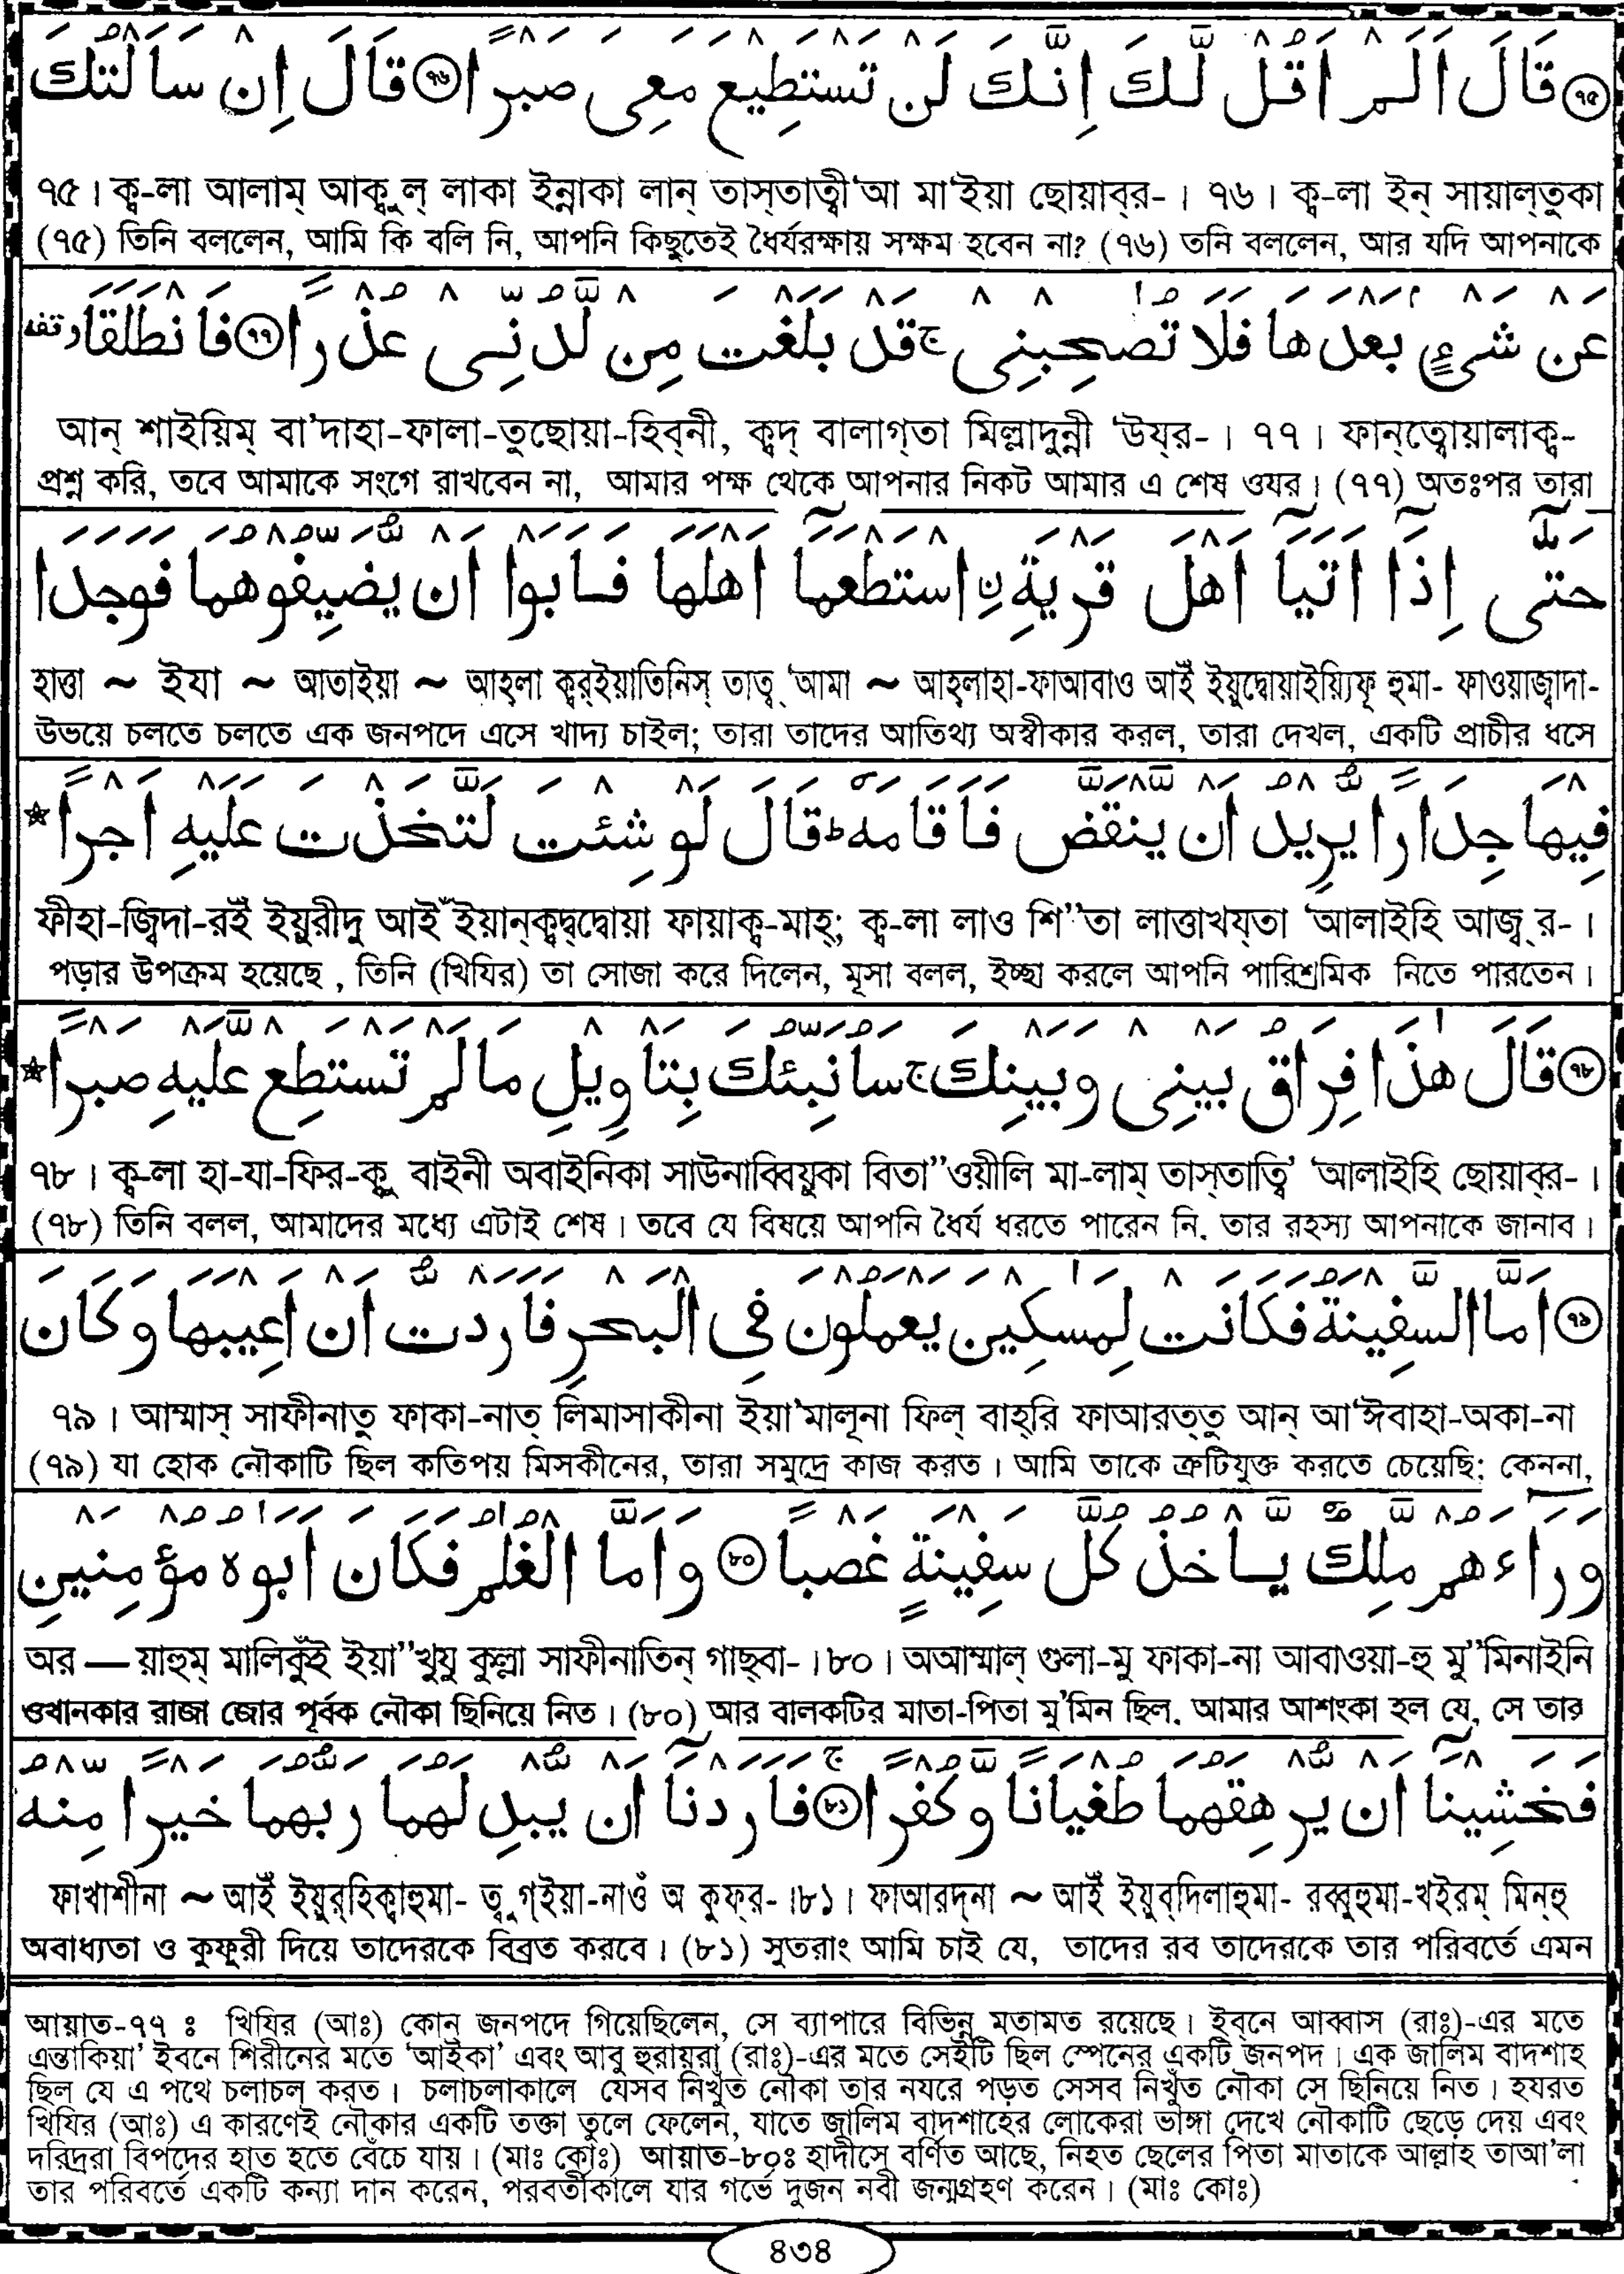 ﴿৭৫﴾ قَالَ اَلَمْ اَقُلْ لَّكَ اِنَّكَ لَنْ تَسْتَطِيْعَ مَعِىَ صَبْرًا ﴿৭৬﴾ قَالَ اِنْ سَاَلْتُكَ
৭৫। ক্ব-লা আলাম্ আক্বুল্ লাকা ইন্নাকা লান্ তাস্তাত্বী‘আ মা‘ইয়া ছোয়াব্‌র-। ৭৬। ক্ব-লা ইন্ সায়াল্‌তুকা
(৭৫) তিনি বললেন, আমি কি বলি নি, আপনি কিছুতেই ধৈর্যরক্ষায় সক্ষম হবেন না? (৭৬) তনি বললেন, আর যদি আপনাকে
عَنْ شَىْءٍۭ بَعْدَهَا فَلَا تُصٰحِبْنِىْ ج قَدْ بَلَغْتَ مِنْ لَّدُنِّىْ عُذْرًا ﴿৭৭﴾ فَانْطَلَقَا وقفه
আন্ শাইয়িম্ বা’দাহা-ফালা-তুছোয়া-হিব্‌নী, ক্বদ্ বালাগ্‌তা মিল্লাদুন্নী ‘উয্‌র-। ৭৭। ফান্‌ত্বোয়ালাক্ব-
প্রশ্ন করি, তবে আমাকে সংগে রাখবেন না, আমার পক্ষ থেকে আপনার নিকট আমার এ শেষ ওযর। (৭৭) অতঃপর তারা
حَتّٰىٓ اِذَآ اَتَيَآ اَهْلَ قَرْيَةِ ِۨاسْتَطْعَمَآ اَهْلَهَا فَاَبَوْا اَنْ يُّضَيِّفُوْهُمَا فَوَجَدَا
হাত্তা ~ ইযা ~ আতাইয়া ~ আহ্‌লা ক্বর্‌ইয়াতিনিস্ তাত্ব্‘আমা ~ আহ্‌লাহা-ফাআবাও আইঁ ইয়ুদ্বোয়াইয়্যিফূ হুমা- ফাওয়াজ্বাদা-
উভয়ে চলতে চলতে এক জনপদে এসে খাদ্য চাইল; তারা তাদের আতিথ্য অস্বীকার করল, তারা দেখল, একটি প্রাচীর ধসে
فِيْهَا جِدَارًا يُّرِيْدُ اَنْ يَّنْقَضَّ فَاَقَامَهٗ ط قَالَ لَوْ شِئْتَ لَتَّخَذْتَ عَلَيْهِ اَجْرًا ★
ফীহা-জ্বিদা-রইঁ ইয়ুরীদু আইঁ ইয়ান্‌ক্বদ্বদ্বোয়া ফায়াক্ব-মাহ্; ক্ব-লা লাও শি”তা লাত্তাখয্‌তা ‘আলাইহি আজ্ব্‌র-।
পড়ার উপক্রম হয়েছে, তিনি (খিযির) তা সোজা করে দিলেন, মূসা বলল, ইচ্ছা করলে আপনি পারিশ্রমিক নিতে পারতেন।
﴿৭৮﴾ قَالَ هٰذَا فِرَاقُ بَيْنِىْ وَبَيْنِكَ ج سَاُنَبِّئُكَ بِتَاْوِيْلِ مَا لَمْ تَسْتَطِعْ عَلَيْهِ صَبْرًا ★
৭৮। ক্ব-লা হা-যা-ফির-ক্বু বাইনী অবাইনিকা সাউনাব্বিয়ুকা বিতা”ওয়ীলি মা-লাম্ তাস্‌তাত্বি’ ‘আলাইহি ছোয়াব্‌র-।
(৭৮) তিনি বলল, আমাদের মধ্যে এটাই শেষ। তবে যে বিষয়ে আপনি ধৈর্য ধরতে পারেন নি. তার রহস্য আপনাকে জানাব।
﴿৭৯﴾ اَمَّا السَّفِيْنَةُ فَكَانَتْ لِمَسٰكِيْنَ يَعْمَلُوْنَ فِى الْبَحْرِ فَاَرَدْتُّ اَنْ اَعِيْبَهَا وَكَانَ
৭৯। আম্মাস্ সাফীনাতু ফাকা-নাত্ লিমাসাকীনা ইয়া’মালূনা ফিল্ বাহ্‌রি ফাআরত্‌তু আন্ আ‘ঈবাহা-অকা-না
(৭৯) যা হোক নৌকাটি ছিল কতিপয় মিসকীনের, তারা সমুদ্রে কাজ করত। আমি তাকে ত্রুটিযুক্ত করতে চেয়েছি; কেননা,
وَرَآءَهُمْ مَّلِكٌ يَّاْخُذُ كُلَّ سَفِيْنَةٍ غَصْبًا ﴿৮০﴾ وَاَمَّا الْغُلٰمُ فَكَانَ اَبَوٰهُ مُؤْمِنَيْنِ
অর — য়াহুম্ মালিকুঁই ইয়া”খুযু কুল্লা সাফীনাতিন্ গাছ্‌বা-।৮০। অআম্মাল্ গুলা-মু ফাকা-না আবাওয়া-হু মু”মিনাইনি
ওখানকার রাজা জোর পূর্বক নৌকা ছিনিয়ে নিত। (৮০) আর বালকটির মাতা-পিতা মু’মিন ছিল. আমার আশংকা হল যে, সে তার
فَخَشِيْنَآ اَنْ يُّرْهِقَهُمَا طُغْيَانًا وَّكُفْرًا ﴿৮১﴾ فَاَرَدْنَآ اَنْ يُّبْدِلَهُمَا رَبُّهُمَا خَيْرًا مِّنْهُ
ফাখাশীনা ~ আইঁ ইয়ুর্‌হিক্বাহুমা- ত্বুগ্‌ইয়া-নাওঁ অ কুফ্‌র-।৮১। ফাআরদ্‌না ~ আইঁ ইয়ুব্‌দিলাহুমা- রব্বুহুমা-খইরম্ মিন্‌হু
অবাধ্যতা ও কুফুরী দিয়ে তাদেরকে বিব্রত করবে। (৮১) সুতরাং আমি চাই যে, তাদের রব তাদেরকে তার পরিবর্তে এমন
আয়াত-৭৭ ঃ খিযির (আঃ) কোন্ জনপদে গিয়েছিলেন, সে ব্যাপারে বিভিন্ন মতামত রয়েছে। ইব্‌নে আব্বাস (রাঃ)-এর মতে
এন্তাকিয়া’ ইবনে শিরীনের মতে ‘আইকা’ এবং আবু হুরায়রা (রাঃ)-এর মতে সেইটি ছিল স্পেনের একটি জনপদ। এক জালিম বাদশাহ
ছিল যে এ পথে চলাচল করত। চলাচলাকালে যেসব নিখুঁত নৌকা তার নযরে পড়ত সেসব নিখুঁত নৌকা সে ছিনিয়ে নিত। হযরত
খিযির (আঃ) এ কারণেই নৌকার একটি তক্তা তুলে ফেলেন, যাতে জালিম বাদশাহের লোকেরা ভাঙ্গা দেখে নৌকাটি ছেড়ে দেয় এবং
দরিদ্ররা বিপদের হাত হতে বেঁচে যায়। (মাঃ কোঃ) আয়াত-৮০ঃ হাদীসে বর্ণিত আছে, নিহত ছেলের পিতা মাতাকে আল্লাহ তাআ’লা
তার পরিবর্তে একটি কন্যা দান করেন, পরবর্তীকালে যার গর্ভে দুজন নবী জন্মগ্রহণ করেন। (মাঃ কোঃ)
৪৩৪